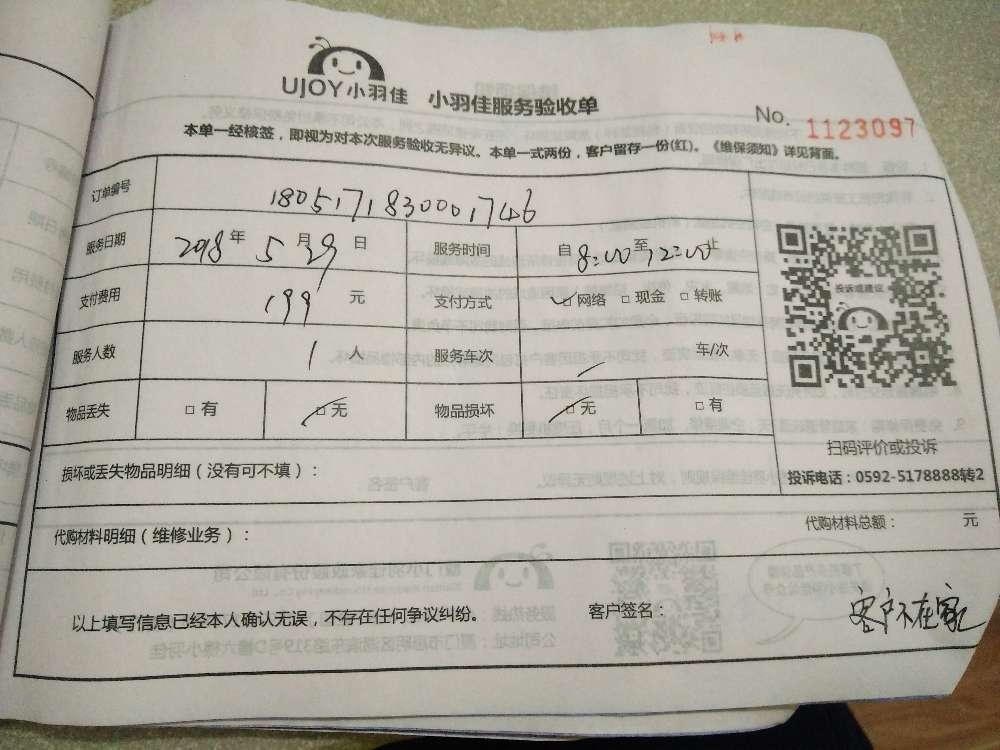 UJOY小羽佳 小羽佳服务验收单
No. 1123097
本单一经核签，即视为对本次服务验收无异议。本单一式两份，客户留存一份(红)。《维保须知》详见背面。
订单编号 1805171830001746
服务日期 2018年 5月29日 服务时间 自8:00至12:00止
支付费用 199 元 支付方式 □网络 □现金 □转账
服务人数 1 人 服务车次 车/次
物品丢失 □有 □无 物品损坏 □无 □有
投诉或建议
扫码评价或投诉
投诉电话：0592-5178888转2
损坏或丢失物品明细（没有可不填）：
代购材料明细（维修业务）： 代购材料总额： 元
以上填写信息已经本人确认无误，不存在任何争议纠纷。 客户签名： 客户不在家